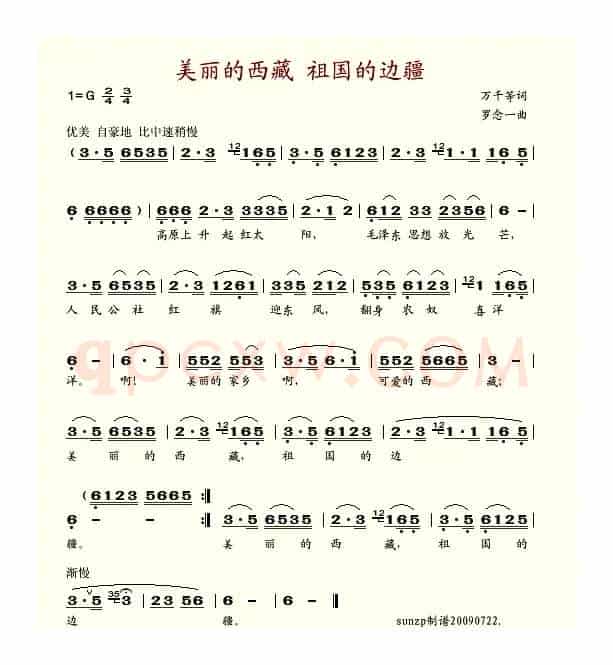 美丽的西藏 祖国的边疆
1=G 2/4 3/4
万千等词
罗念一曲
优美 自豪地 比中速稍慢
( 3·5 6535 | 2·3 12 165 | 3·5 6123 | 2·3 12 1·1 165 |
6 6666 ) | 666 2·3 3335 | 2·1 2 | 612 33 2356 | 6 – |
高原上 升 起 红太 阳, 毛泽东 思想 放 光 芒,
3·5 6535 | 2·3 1261 | 612 3 | 535 6123 | 12 1 165 |
人 民 公 社 红 旗 迎东 风, 翻身 农 奴 喜 洋
6 – | 6·1 | 552 553 | 3·5 6·1 | 552 5665 | 3 – |
洋。 啊! 美丽的 家乡 啊, 可爱的 西 藏;
qpcxw.com
3·5 6535 | 2·3 12 165 | 3·5 6123 | 2·3 12 1·1 16 5 |
美 丽 的 西 藏, 祖 国 的 边
( 6123 5665 :||
6 – – :|| 3·5 6535 | 2·3 12 165 | 3·5 6123 |
疆。 美 丽 的 西 藏, 祖 国 的
渐慢
3·5 35 3 | 2356 | 6 – | 6 – ||
边 疆。 sunzp制谱20090722.